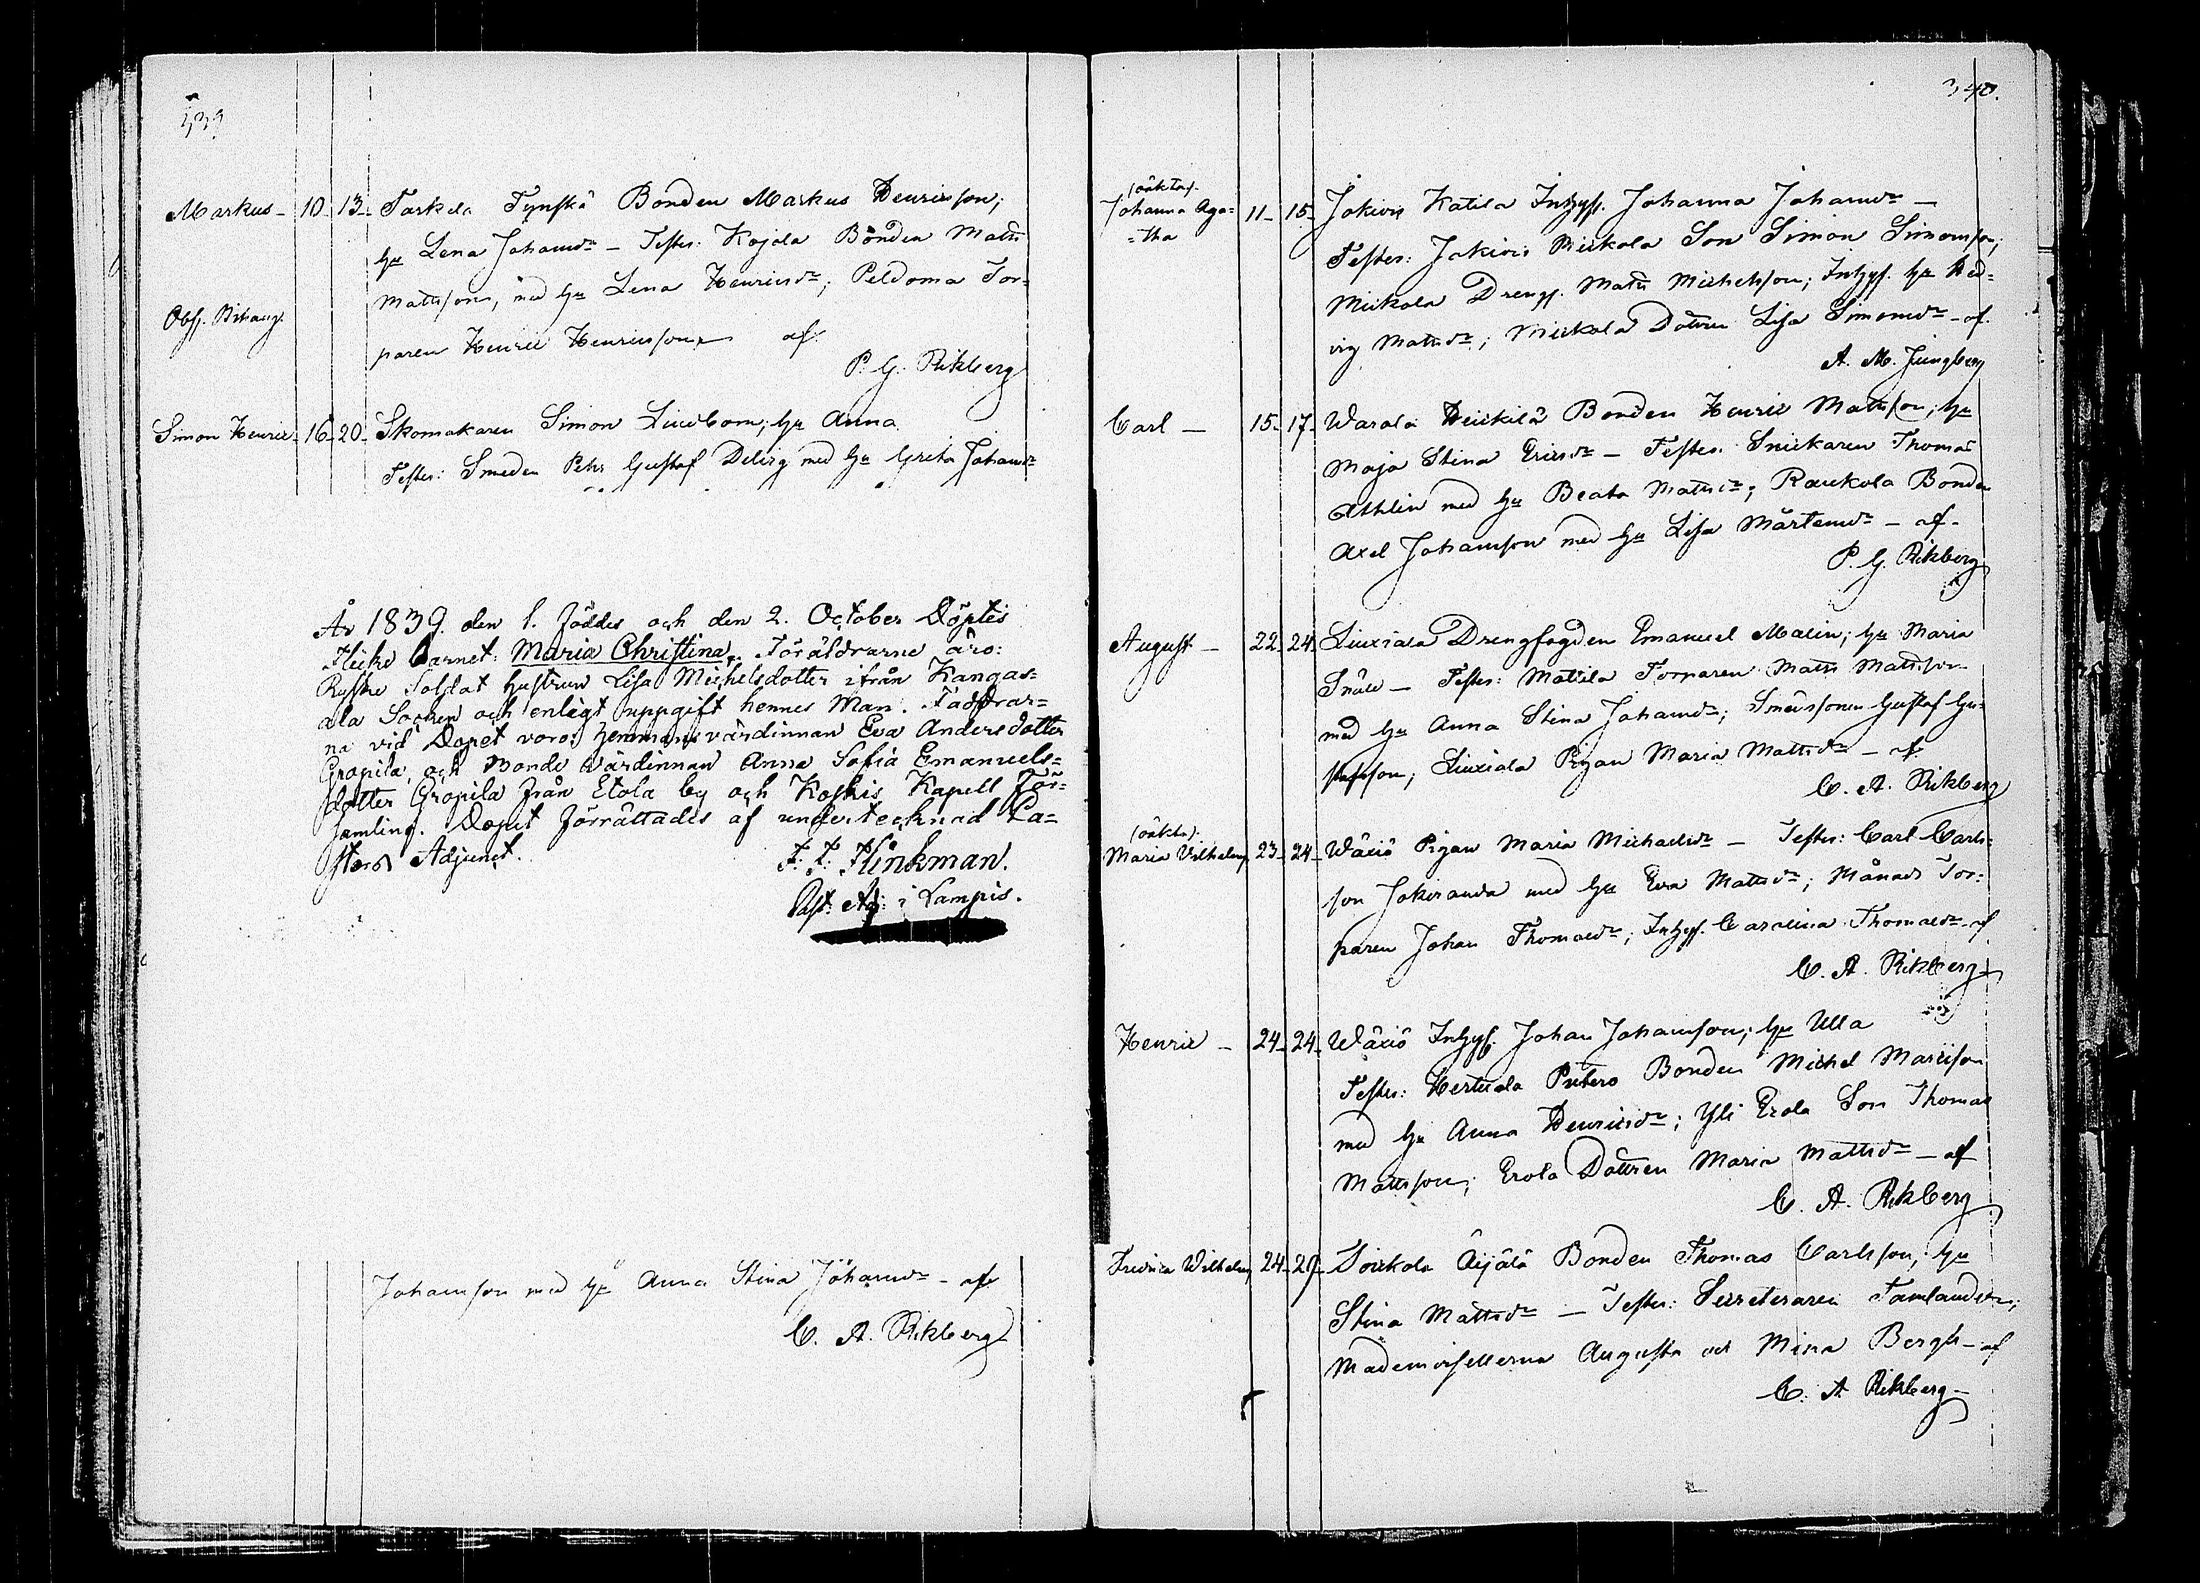 339
Markus - 10 - 13 - Tarkela Tynskä Bonden Markus Henricsson;
hu Lena Johansdr - Testes: Kojola Bonden Matts
Obs. Bihang.
Mattsson, med hu Lena Henricsdr; Peldoma Tor-
paren Henric Henricsson af
P. G. Rikberg
Simon Henric - 16 - 20 - Skomakaren Simon Lindbom; hu Anna
Testes: Smeden Pehr Gustaf Delirg med hu Greta Johansdr
År 1839. den 1. föddes och den 2. October Döptes
Flicke barnet: Maria Christina. Föräldrarne äro:
Ryske Soldat hustrun Lisa Michelsdotter ifrån Kangas-
ala Socken och enligt uppgift hennes Man. Faddrar-
na vid Dopet voro: Hemmans värdinnan Eva Andersdotter
Gropila, och Bonde Värdinnan Anna Sofia Emanuels-
dotter Gropila från Etola by och Koskis Kapell För-
samling. Dopet förrättades af undertecknad Pa-
stors Adjunct.
F. F. Flinkman.
Past. Adj: i Lampis.
Johansson med hu Anna Stina Johansdr - af
C. A. Rikberg
340.
(oäkta).
Johanna Aga= 11 - 15 - Jokiois Katila Inhys. Johanna Johansdr -
=tha
Testes: Jokiois Mickola Son Simon Simonsson;
Mickola Dreng. Matts Michelsson; Inhys. hu Hed-
vig Mattsdr; Mickola Dottren Lisa Simonsdr - af
A. M. Jungberg
Carl - 15 - 17 - Warala Heickilä Bonden Henric Mattsson; hu
Maja Stina Ericsdr - Testes: Snickaren Thomas
Athlin med hu Beata Mattsdr; Raukola Bonden
Axel Johansson med hu Lisa Mårtensdr - af
P. G. Rikberg
August - 22 - 24 - Liuxiala Drengfogden Emanuel Malin; hu Maria
Snäle - Testes: Matiila Torparen Matts Mattsson
med hu Anna Stina Johansdr; Smedssonen Gustaf Gu-
stafsson; Liuxiala Pigan Maria Mattsdr - af
C. A. Rikberg
(oäkta).
Maria Vilhelm. 23 - 24 - Wäxiö Pigan Maria Michaelsdr - Testes: Carl Carls-
son Jokiranda med hu Eva Mattsdr; Månads Tor-
paren Johan Thomasdr; Inhys. Carolina Thomasdr - af
C. A. Rikberg
Henric - 24 - 24 - Wäxiö Inhys. Johan Johansson; hu Ulla
Testes: Hertuala Punters Bonden Michel Marcisson
med hu Anna Henricsdr; Yli Erola Son Thomas
Mattsson; Erola Dottren Maria Mattsdr - af
C. A. Rikberg
Fredrica Wilhelm. 24 - 27 - Soickola Äijälä Bonden Thomas Carlsson; hu
Stina Mattsdr - Testes: Secreteraren Tamlander;
Mademoisellerna Augusta och Mina Bergh - af
C. A. Rikberg